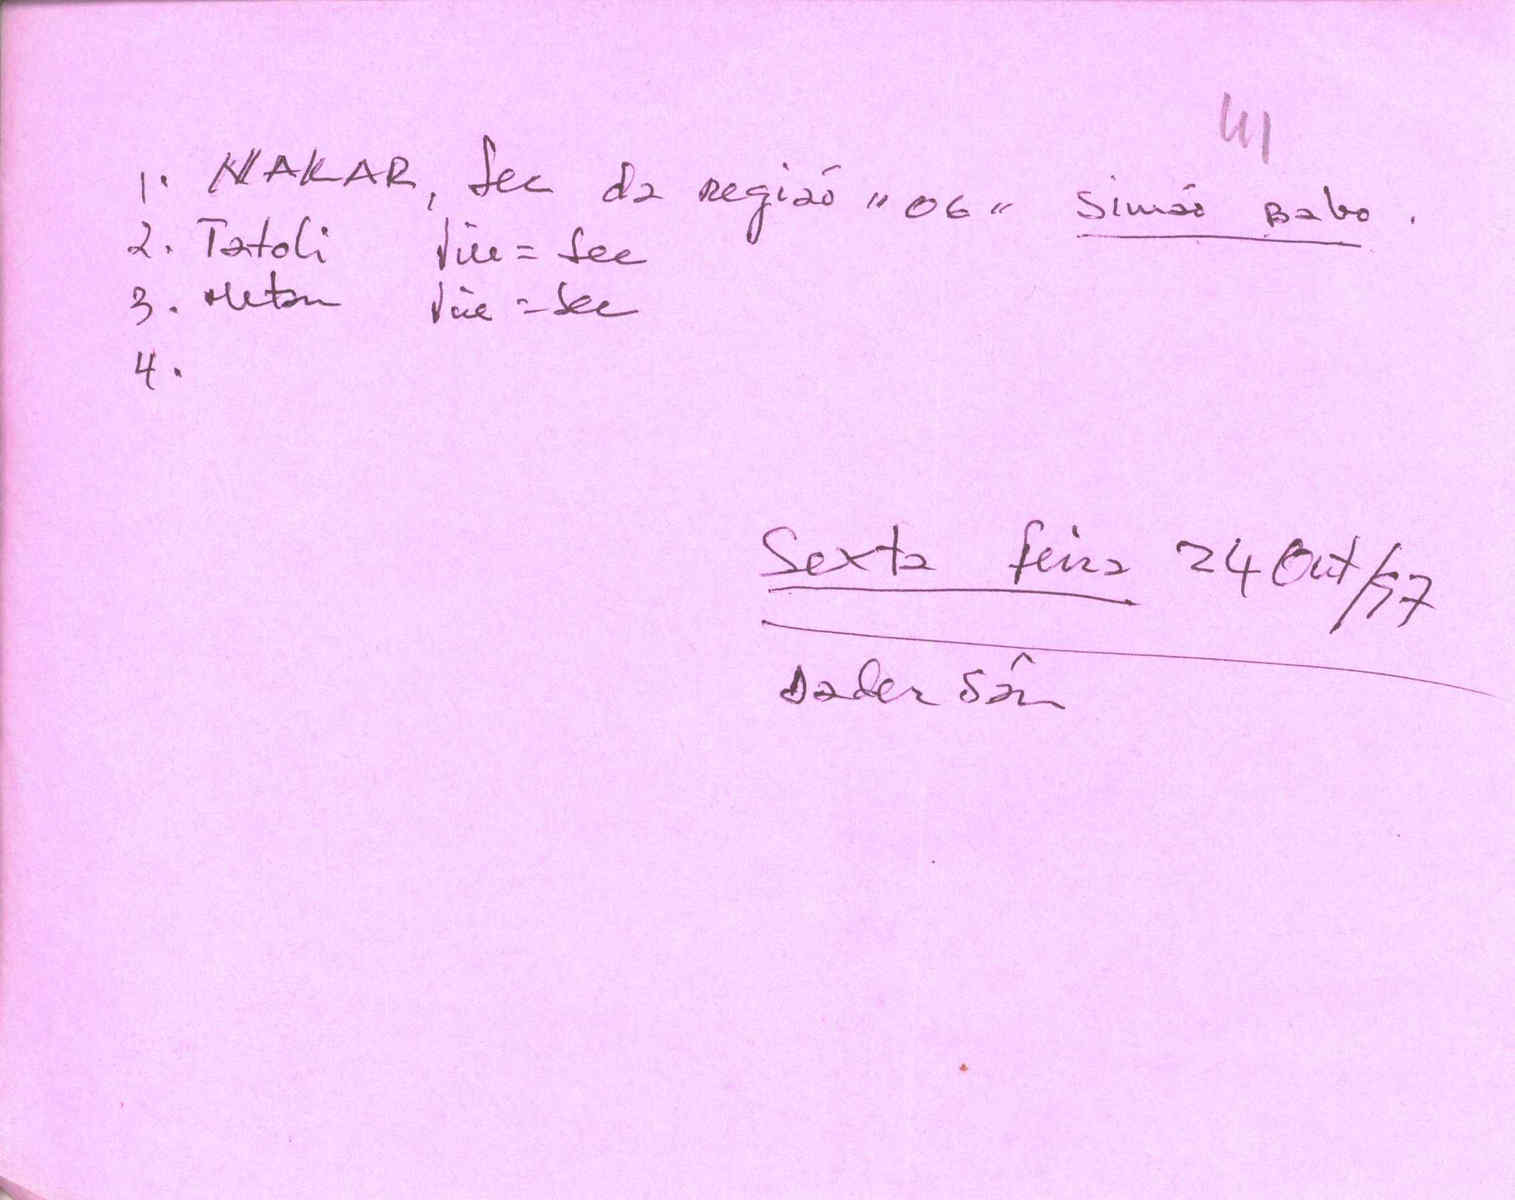 41
1. NAKAR, Sec da região "06" Simão Babo.
2. Tatoli Vice = Sec
3. Vice = Sec
4.
Sexta feira 24 Out/97
Dader